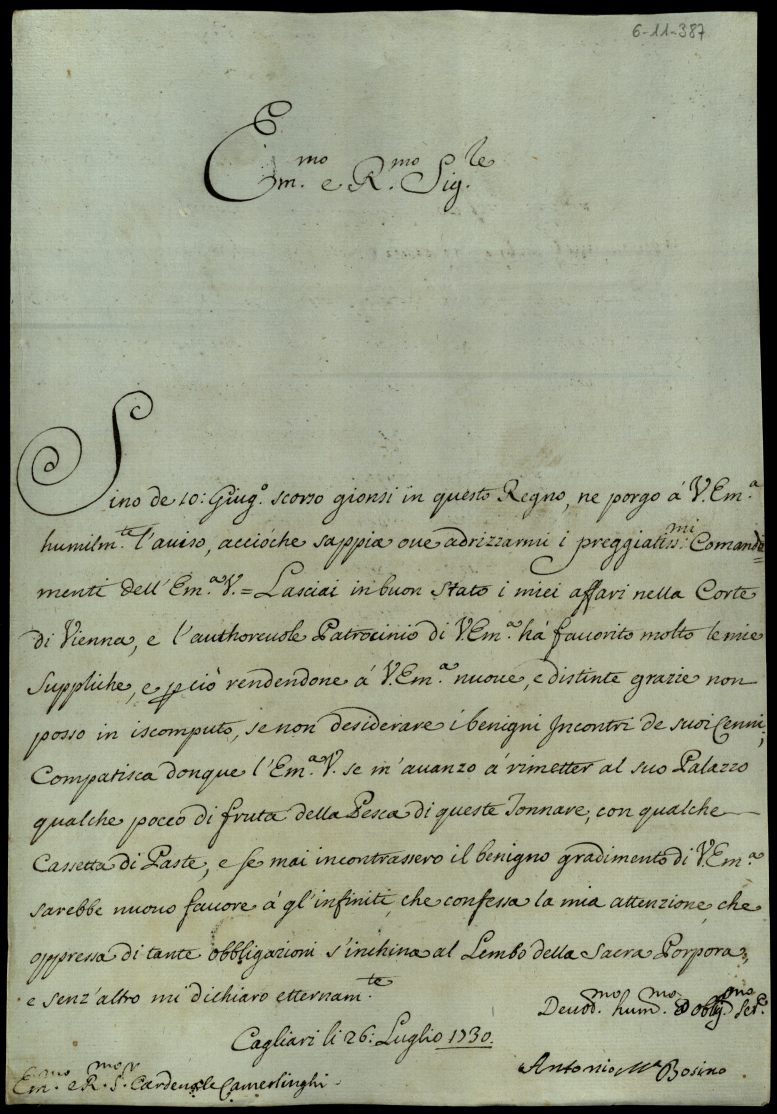 6-11-387
Em.mo e R.mo Sig.le
Sino de 10: Giug.o scorso gionsi in questo Regno, ne porgo á V. Em.a
humilm.te l'auiso, accioche sappia oue adrizzarmi i preggiatiss.mi Comanda=
menti dell'Em.a V.= Lasciai in buon stato i miei affari nella Corte
di Vienna, e l'authoreuole Patrocinio di V. Em.a há fauorito molto le mie
suppliche, e p ciò rendendone á V. Em.a nuoue, e distinte grazie non
posso in iscomputo, se non desiderare i benigni Incontri de suoi Cenni;
Compatisca donque l'Em.a V. se m'auanzo á rimetter al suo Palazzo
qualche pocco di fruta della Pesca di queste Tonnare, con qualche
Cassetta di Paste, e se mai incontrassero il benigno gradimento di V. Em.a
sarebbe nuouo fauore á gl'infiniti, che confessa la mia attenzione, che
oppressa di tante obbligazioni s'inchina al Lembo della Sacra Porpora,
e senz'altro mi dichiaro etternam.te
Deuod.mo hum.mo obblig.mo Ser.e
Cagliari li 26: Luglio 1730.
Antonio M.a Bosino
Em.mo e R.mo S.r Cardenale Camerlinghi